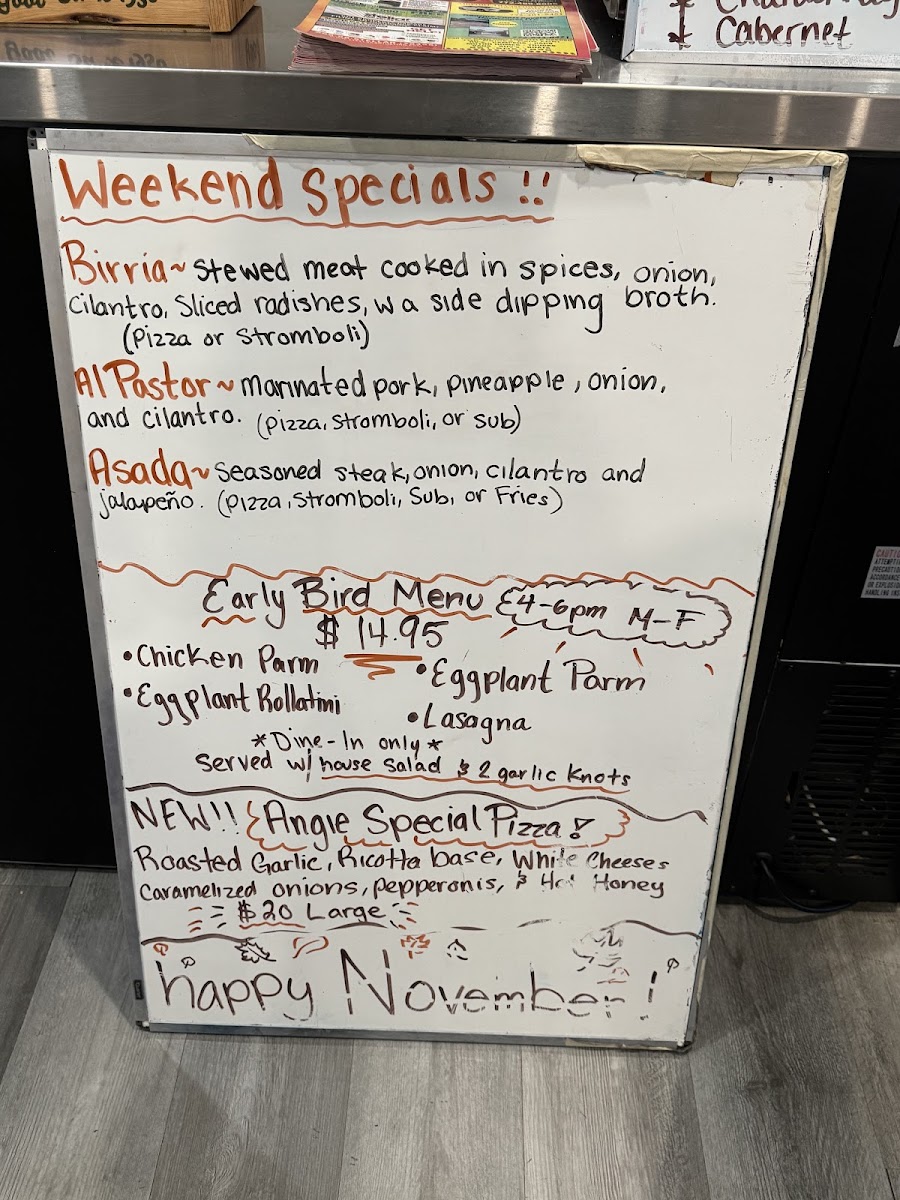 Cabernet
Weekend Specials !!
Birria~ Stewed meat cooked in spices, onion,
Cilantro, Sliced radishes, w a side dipping broth.
(Pizza or Stromboli)
Al Pastor~ marinated pork, pineapple, onion,
and cilantro. (pizza, stromboli, or sub)
Asada~ Seasoned steak, onion, cilantro and
jalapeño. (Pizza, Stromboli, Sub, or Fries)
Early Bird Menu 4-6pm M-F
$ 14.95
•Chicken Parm •Eggplant Parm
•Eggplant Rollatini •Lasagna
*Dine-In only*
Served w/ house salad & 2 garlic knots
NEW!! Angie Special Pizza!
Roasted Garlic, Ricotta base, White Cheeses
Caramelized onions, pepperonis, & Hot Honey
$20 Large
happy November!